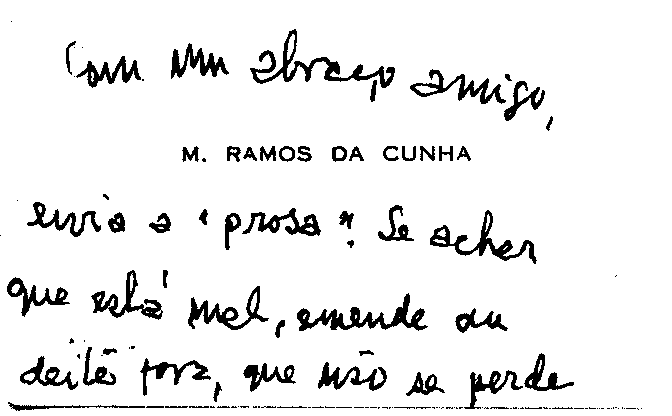 Com um abraço amigo,
M. RAMOS DA CUNHA
envia a "prosa". Se achar
que está mal, emende ou
deite fora, que não se perde